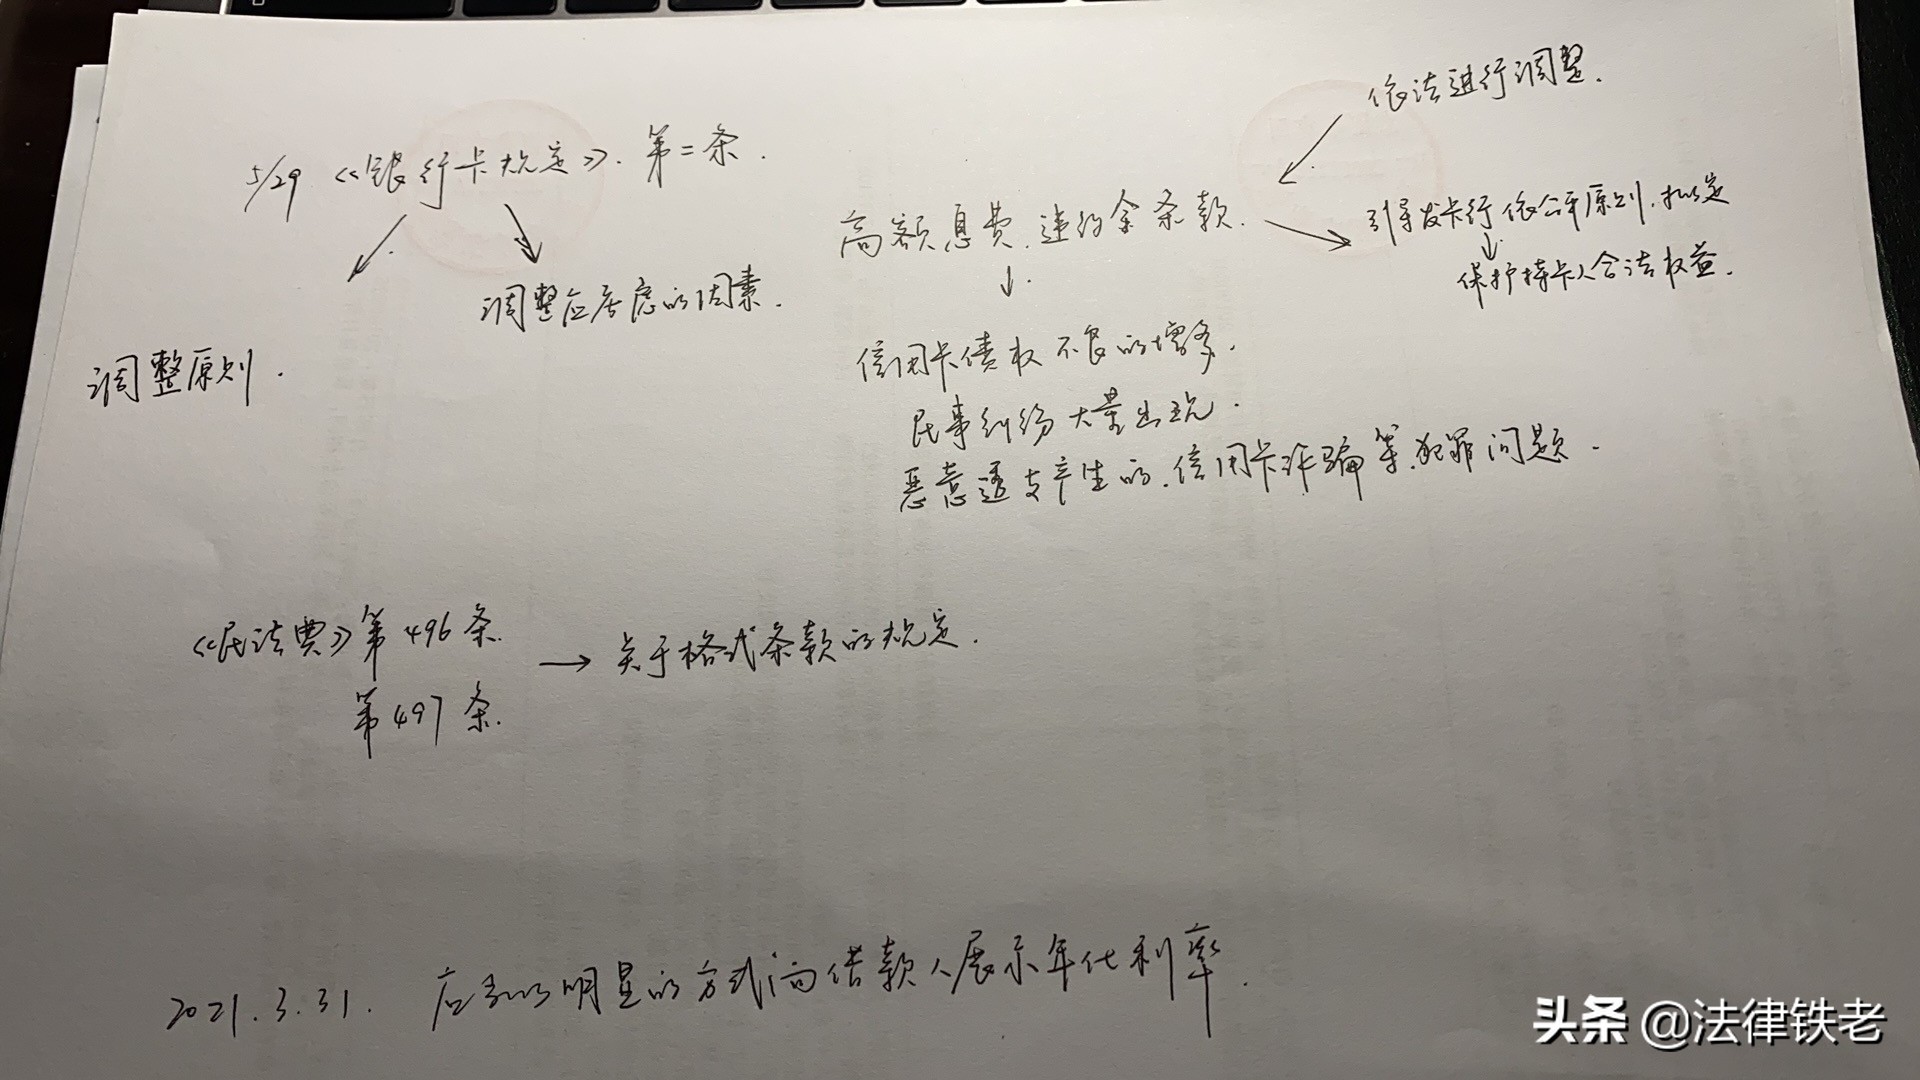 5/29 《银行卡规定》. 第二条.
调整原则.
调整应考虑的因素.
依法进行调整.
高额息费、违约金条款.
引导发卡行依公平原则,拟定
保护持卡人合法权益.
信用卡债权不良的增多.
民事纠纷大量出现.
恶意透支产生的、信用卡诈骗等犯罪问题.
《民法典》第496条.
第497条.
关于格式条款的规定.
2021.3.31. 应当以明显的方式向借款人展示年化利率.
头条 @法律铁老